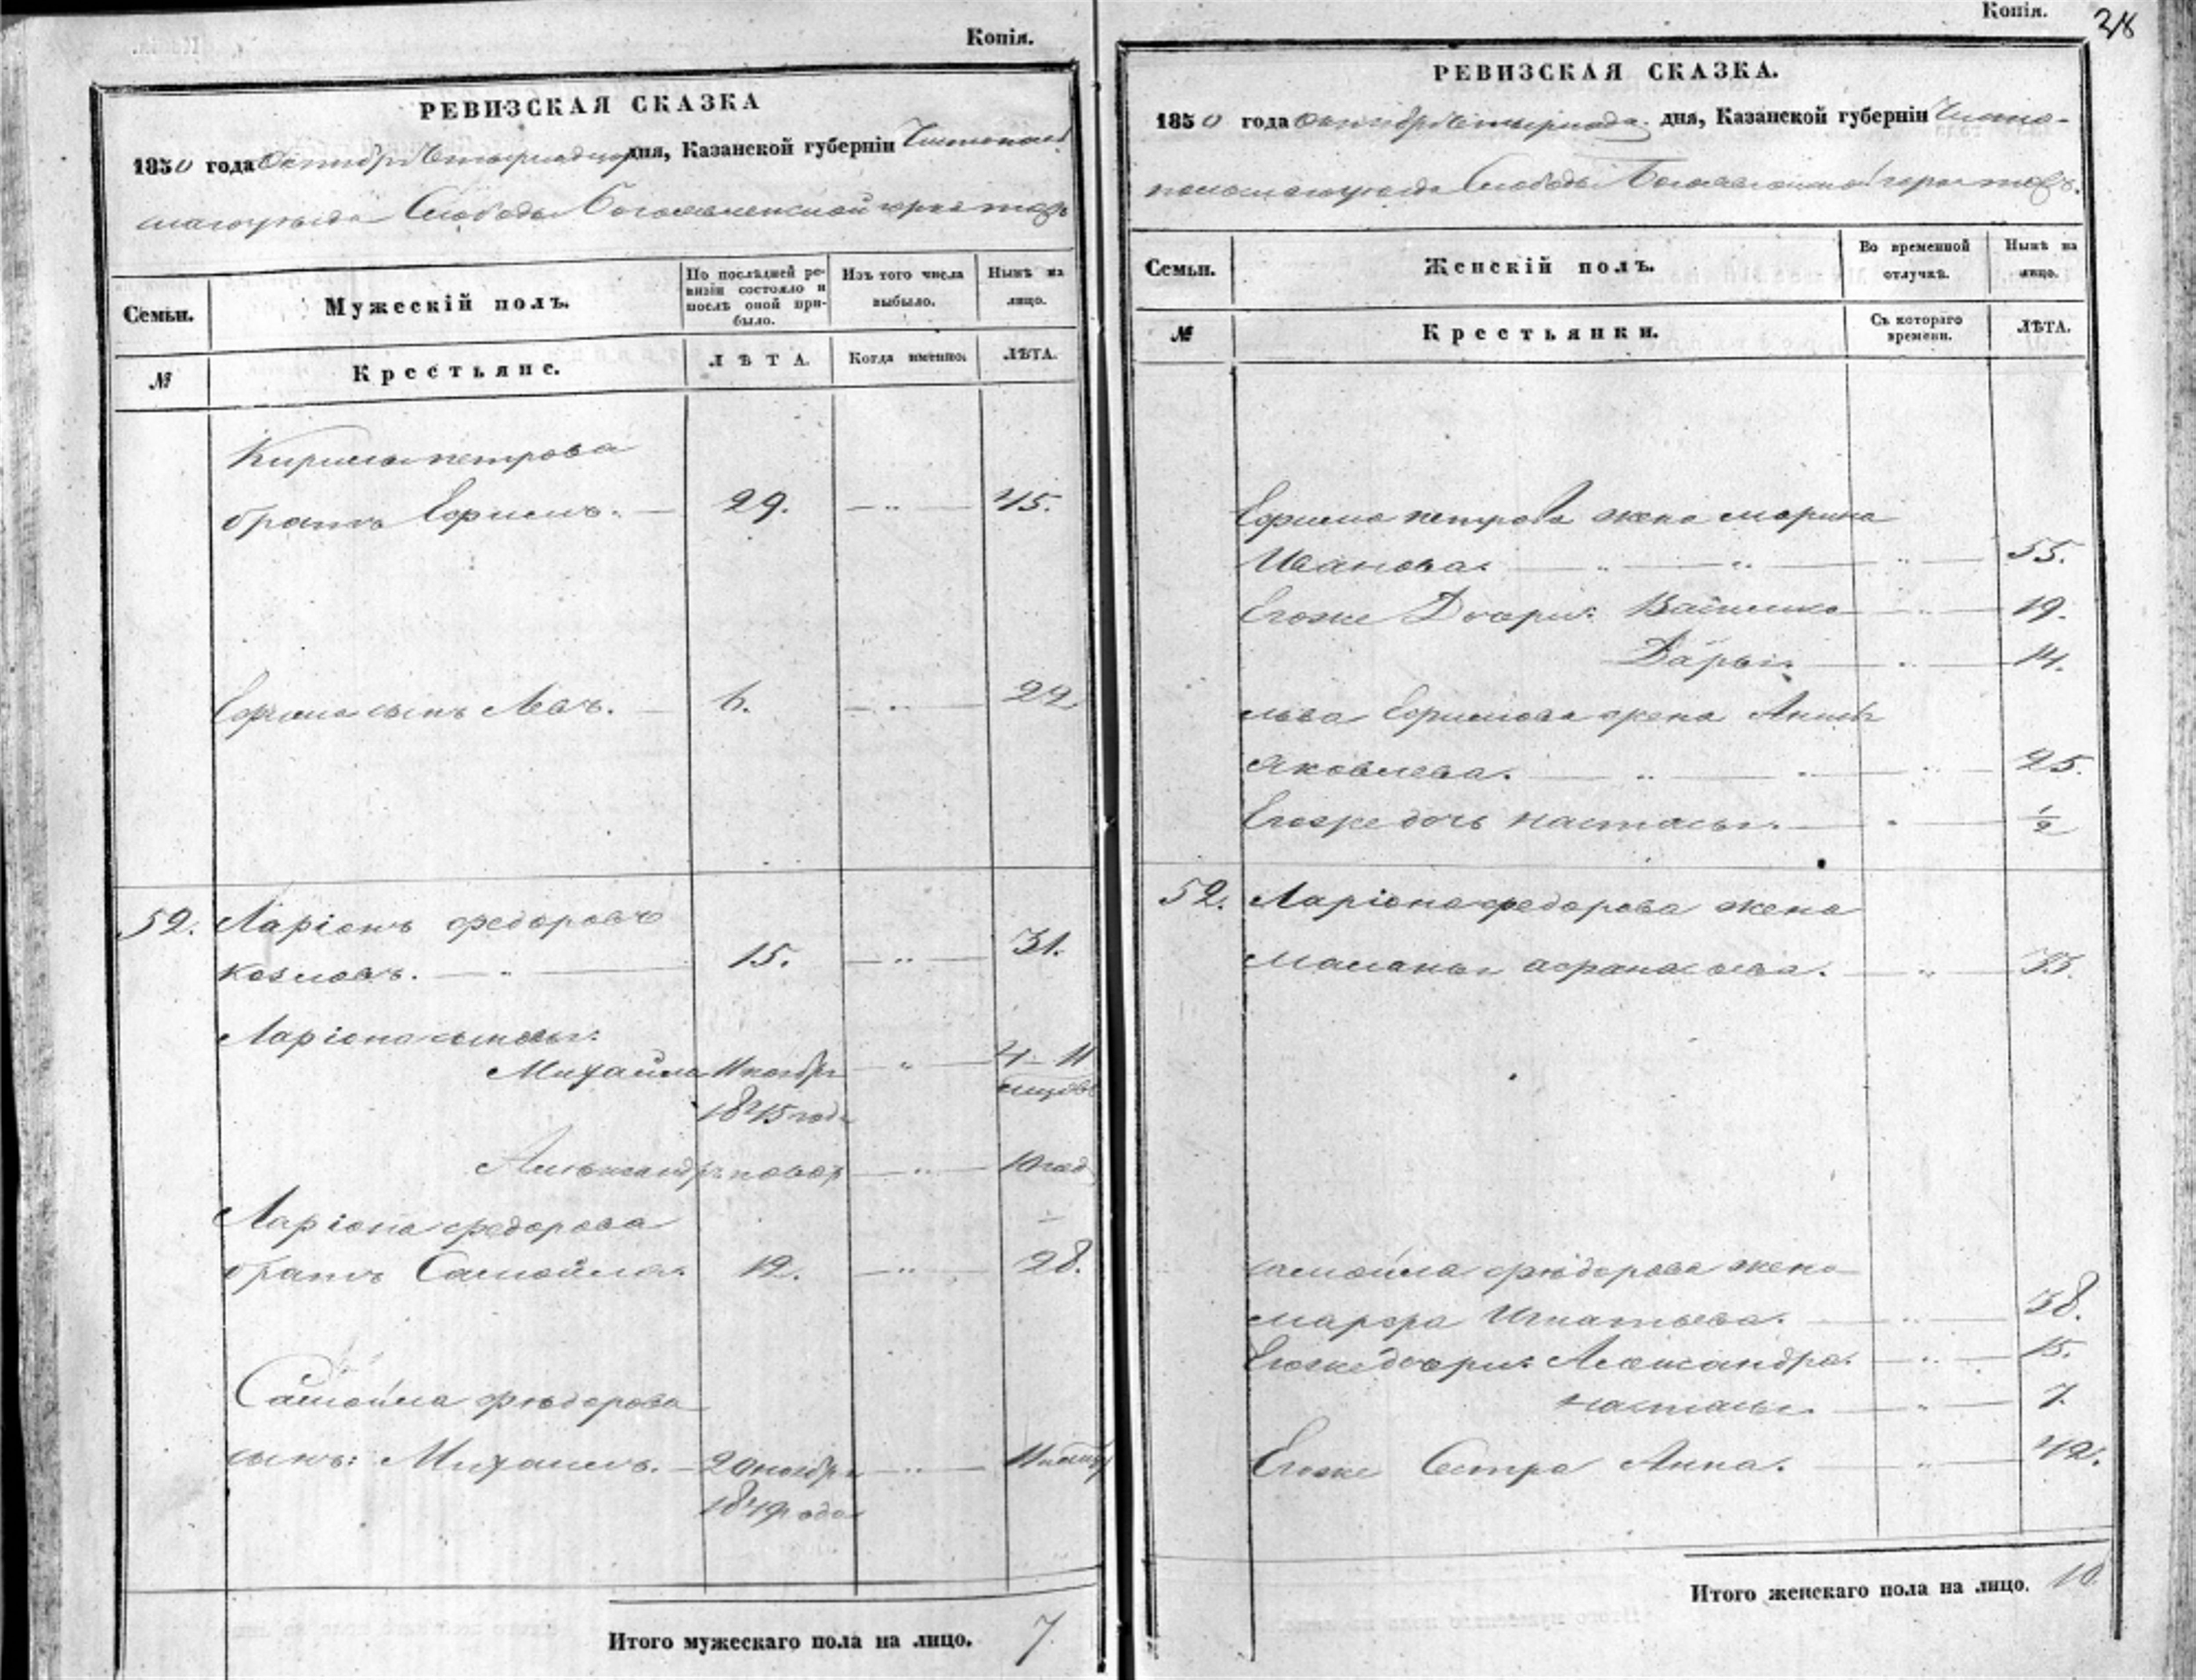 Копія.
РЕВИЗСКАЯ СКАЗКА
1850 года Октября дня, Казанской губерніи
Слободы Богоявленской
Семьи.
Мужескій полъ.
По последней ревизіи состояло и после оной прибыло.
Изъ того числа выбыло.
Нынѣ на лицо.
№
Крестьяне.
ЛѢТА.
Когда именно.
ЛѢТА.
Кирила петрова
братъ Ефимъ. 29. 45.
Ефима сынъ Левъ. 6. 22
52. Ларіонъ федоровъ
козловъ. 15. 31.
Ларіона сыновья:
Михайла 11 ноября 4 – 11
1845 года
Ларіона федорова
братъ Самойла. 12. 28.
Самойла федорова
сынъ: Михаилъ. 20 ноября
1849 года
Итого мужескаго пола на лицо. 7
Копія. 28
РЕВИЗСКАЯ СКАЗКА.
1850 года дня, Казанской губерніи Чисто-
польскаго уезда Слободы Богоявленской
Семьи.
Женскій полъ.
Во временной отлучкѣ.
Нынѣ на лицо.
№
Крестьянки.
Съ котораго времени.
ЛѢТА.
Ефима петрова жена марина
Иванова. 55.
Егоже Дочери: 19.
Дарья. 14.
льва Ефимова жена
Яковлева. 25.
Егоже дочь настасья. 1/2
52. Ларіона федорова жена
маланья афанасьева. 33.
самойла федорова жена
марфа Игнатьева. 38.
Егоже дочери: Александра. 15.
настасья. 7.
Егоже Сестра Анна. 42.
Итого женскаго пола на лицо. 10.